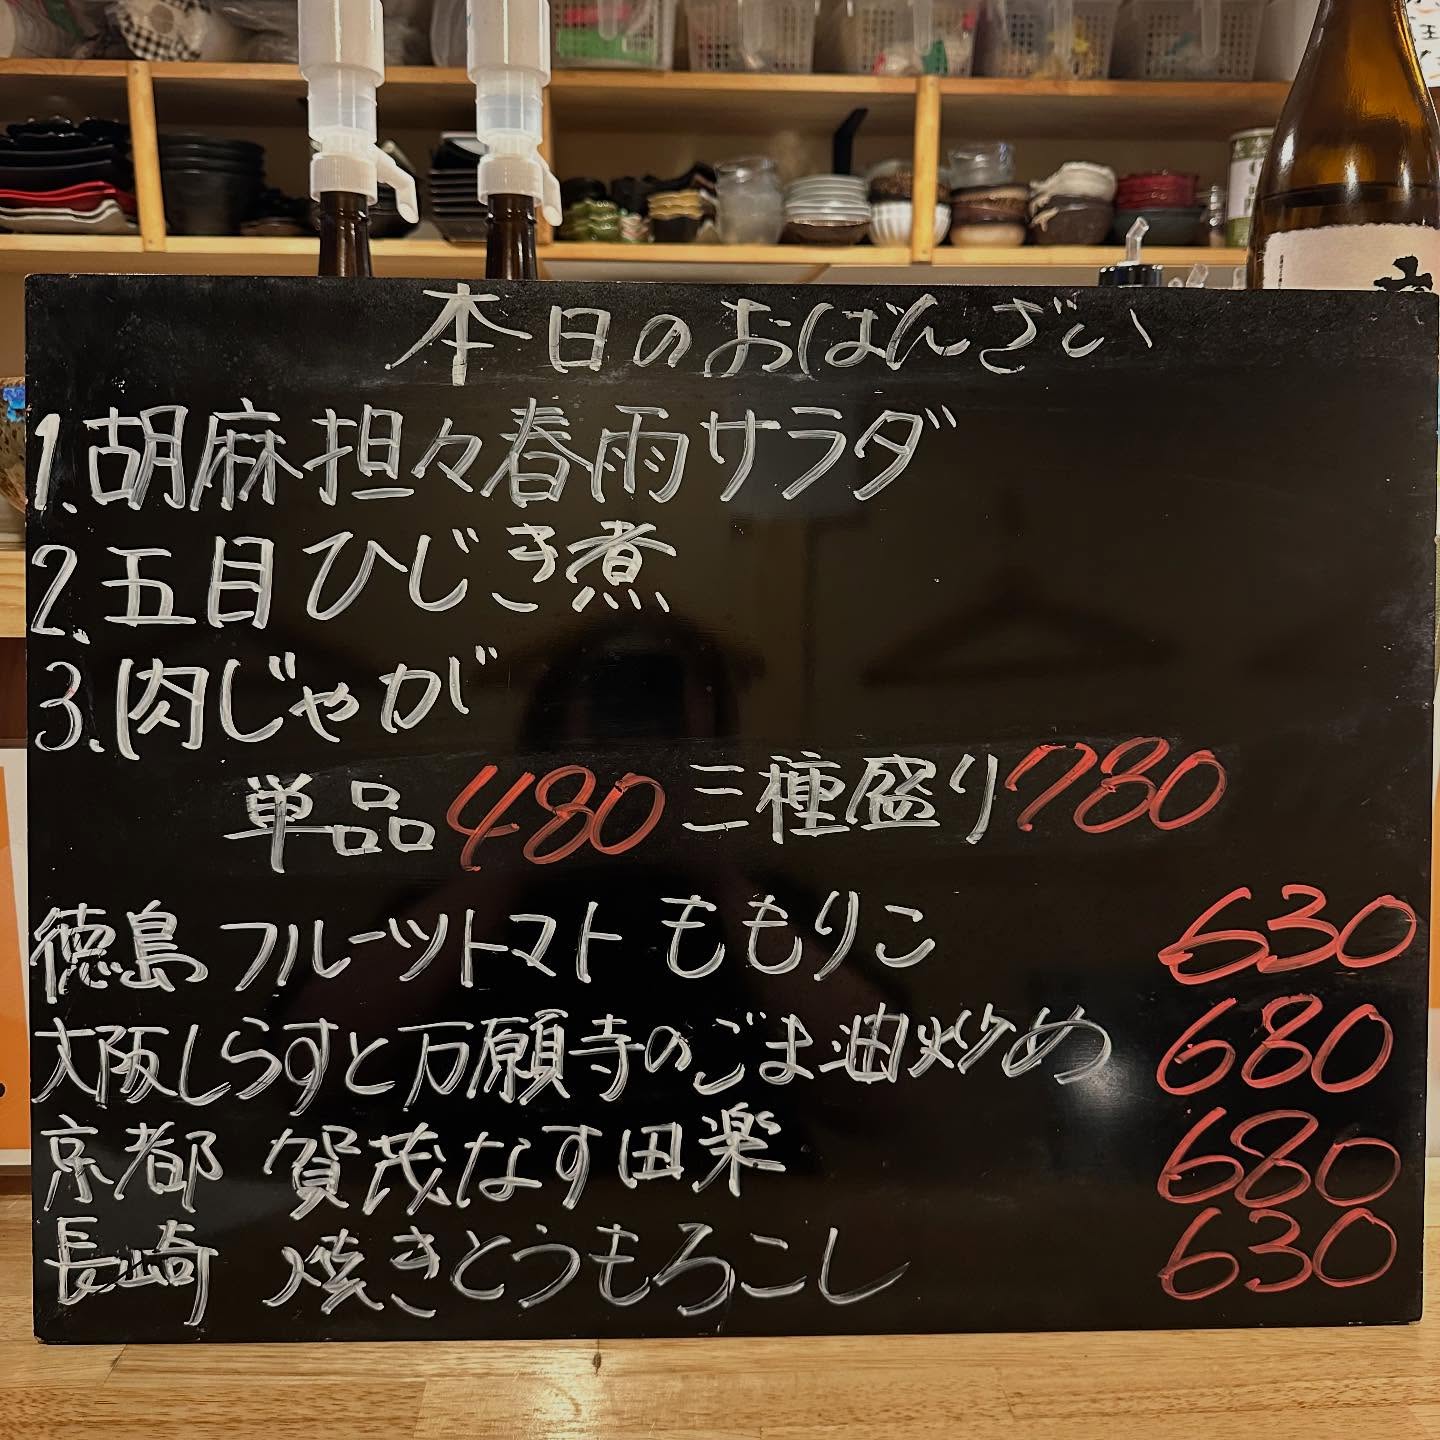 本日のおばんざい
1.胡麻担々春雨サラダ
2.五目ひじき煮
3.肉じゃが
単品480 三種盛り780
徳島 フルーツトマト ももりこ 630
大阪しらすと万願寺のごま油炒め 680
京都 賀茂なす田楽 680
長崎 焼きとうもろこし 630